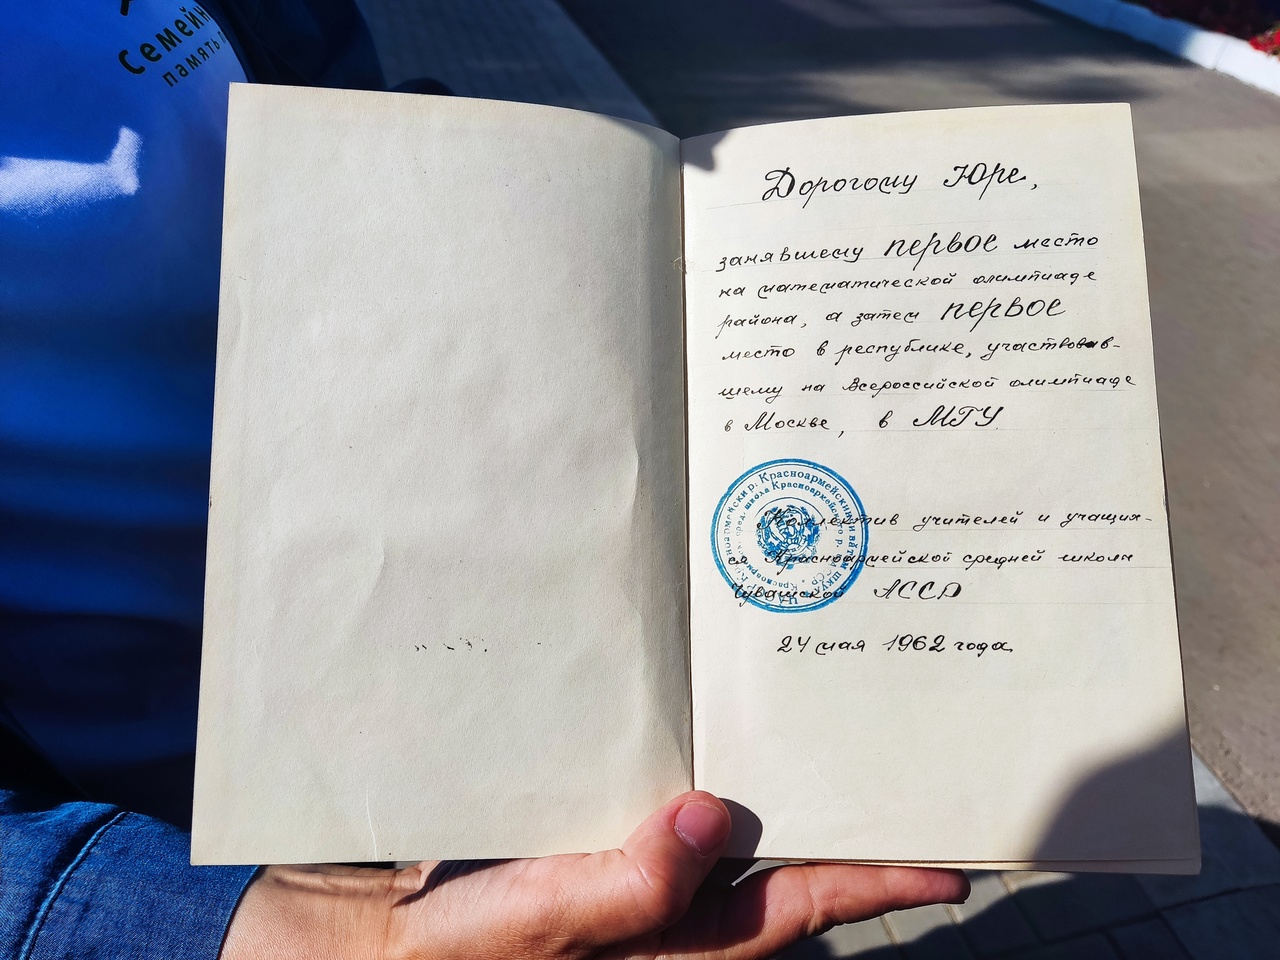 Семейн
память п
Дорогому Юре,
занявшему первое место
на математической олимпиаде
района, а затем первое
место в республике, участвовав-
шему на Всероссийской олимпиаде
в Москве, в МГУ
Коллектив учителей и учащих-
ся Красноармейской средней школы
Чувашской АССР
24 мая 1962 года.